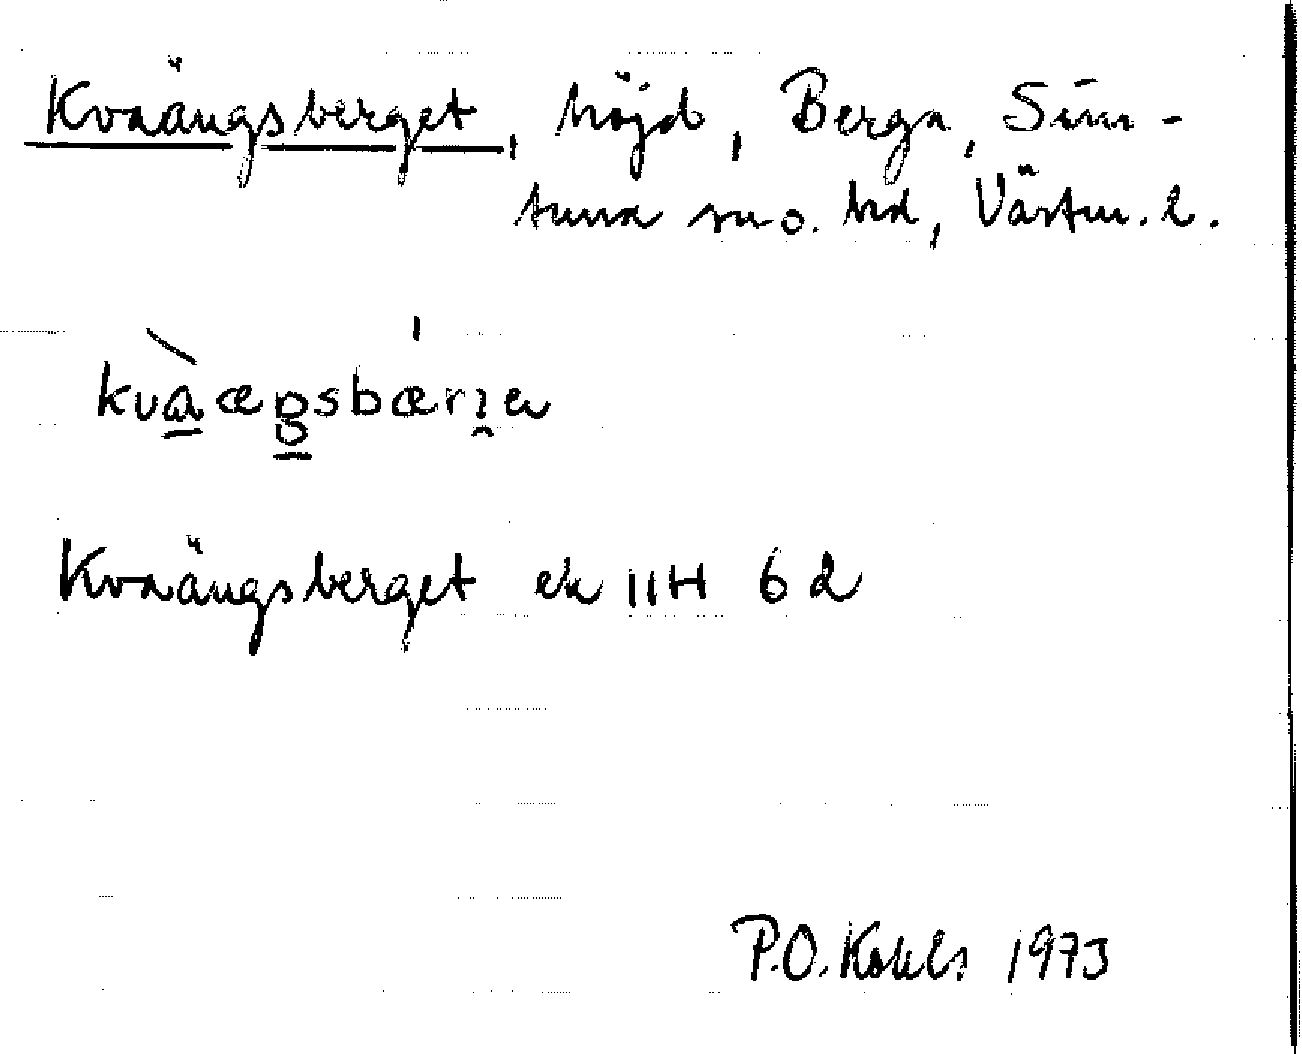 Kvaängsberget, höjd, Berga, Sim-
tuna sn o. hd, Västm. l.
kvàægsbærȷa
Kvaängsberget ek 11H 6d
P.O. Kohls 1973